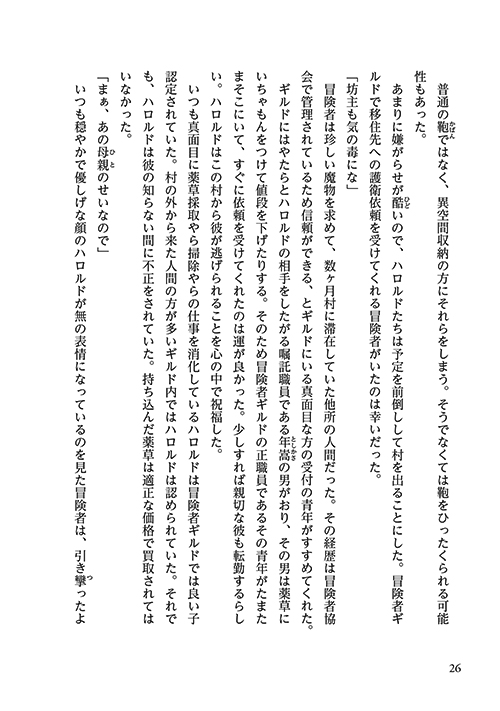 普通の鞄ではなく、異空間収納の方にそれらをしまう。そうでなくては鞄をひったくられる可能
性もあった。
あまりに嫌がらせが酷いので、ハロルドたちは予定を前倒しして村を出ることにした。冒険者ギ
ルドで移住先への護衛依頼を受けてくれる冒険者がいたのは幸いだった。
「坊主も気の毒にな」
冒険者は珍しい魔物を求めて、数ヶ月村に滞在していた他所の人間だった。その経歴は冒険者協
会で管理されているため信頼ができる、とギルドにいる真面目な方の受付の青年がすすめてくれた。
ギルドにはやたらとハロルドの相手をしたがる嘱託職員である年嵩の男がおり、その男は薬草に
いちゃもんをつけて値段を下げたりする。そのため冒険者ギルドの正職員であるその青年がたまた
まそこにいて、すぐに依頼を受けてくれたのは運が良かった。少しすれば親切な彼も転勤するらし
い。ハロルドはこの村から彼が逃げられることを心の中で祝福した。
いつも真面目に薬草採取やら掃除やらの仕事を消化しているハロルドは冒険者ギルドでは良い子
認定されていた。村の外から来た人間の方が多いギルド内ではハロルドは認められていた。それで
も、ハロルドは彼の知らない間に不正をされていた。持ち込んだ薬草は適正な価格で買取されては
いなかった。
「まぁ、あの母親のせいなので」
いつも穏やかで優しげな顔のハロルドが無の表情になっているのを見た冒険者は、引き攣ったよ
26